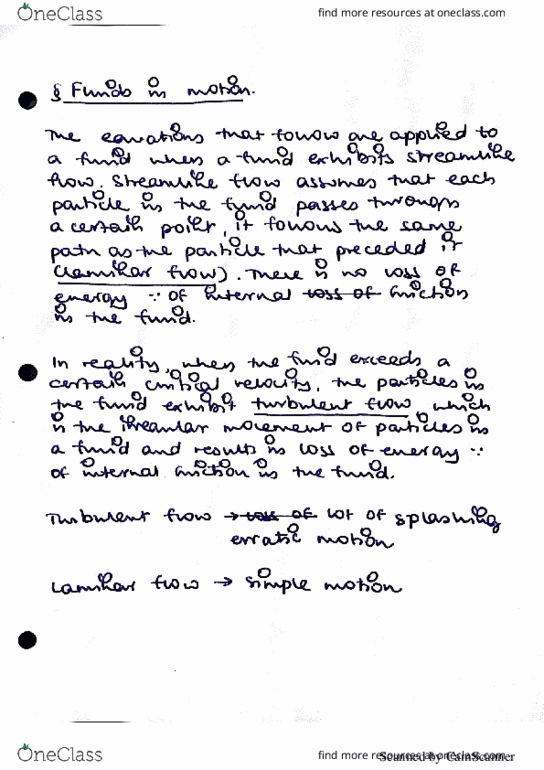 OneClass
find more resources at oneclass.com
§ Fluids in motion.
The equations that follow are applied to
a fluid when a fluid exhibits streamline
flow. Streamline flow assumes that each
particle in the fluid passes through
a certain point, it follows the same
path as the particle that preceded it
(laminar flow). There is no loss of
energy ∵ of internal loss of friction
in the fluid.
In reality, when the fluid exceeds a
certain critical velocity, the particles in
the fluid exhibit turbulent flow, which
is the irregular movement of particles in
a fluid and results in loss of energy ∵
of internal friction in the fluid.
Turbulent flow → loss of lot of splashing
erratic motion
Laminar flow → simple motion
OneClass
find more resources at oneclass.com
Scanned by CamScanner